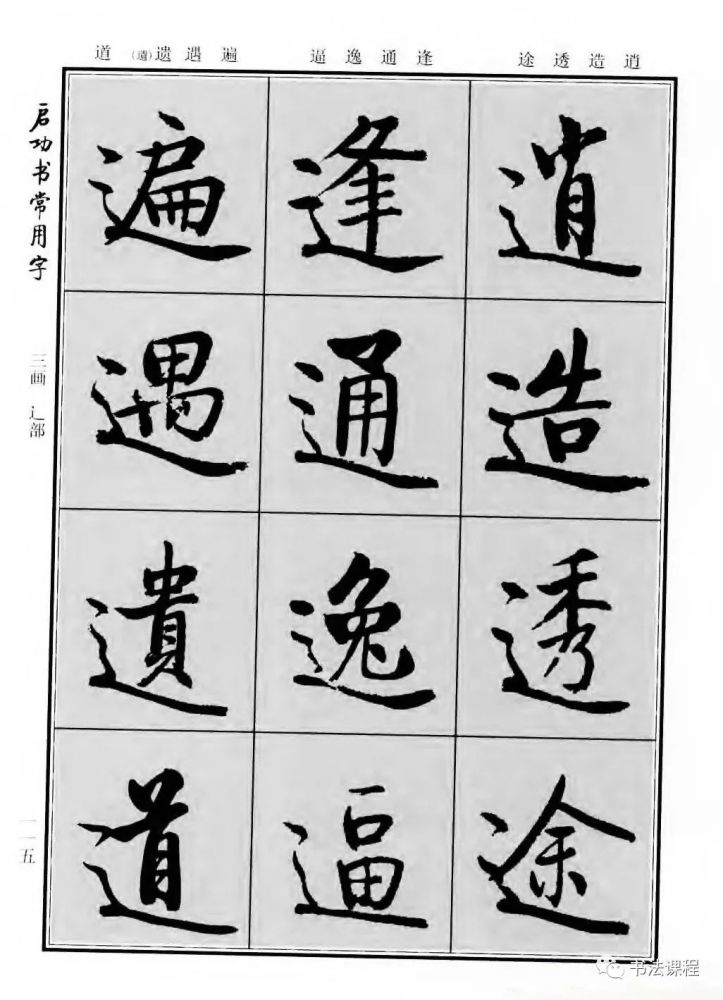 道 (遺)遗 遇 遍
逼 逸 通 逢
途 透 造 逍
启功书常用字
三画 辶部
一一五
逍
造
透
途
逢
通
逸
逼
遍
遇
遺
道
书法课程